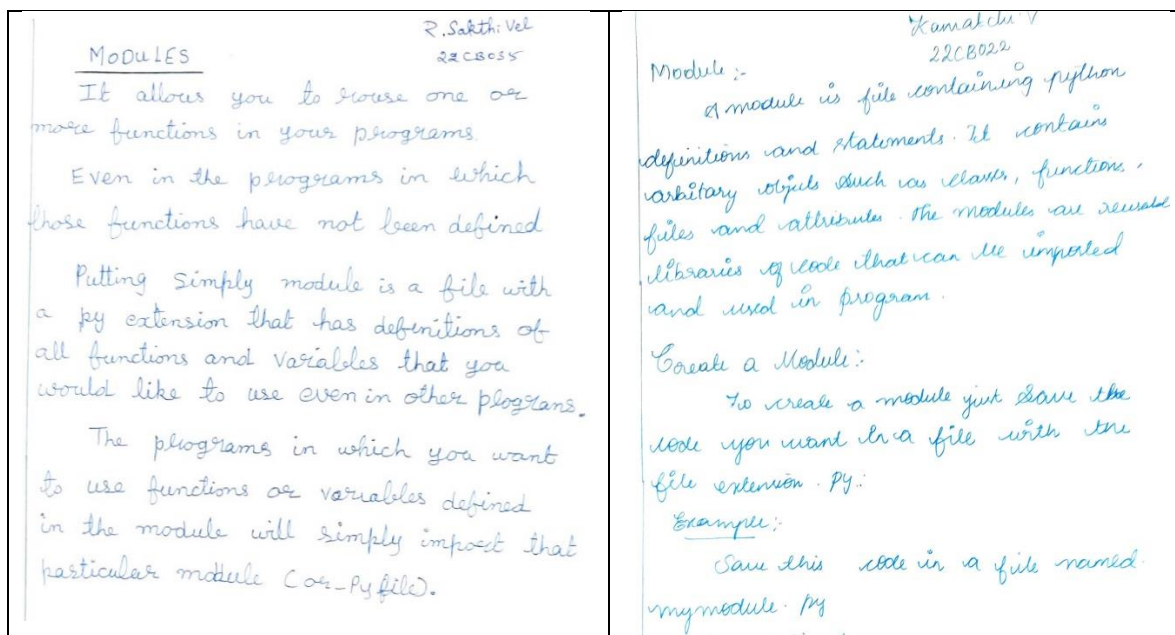 R. Sakthi Vel
22CB035
MODULES
It allows you to reuse one or
more functions in your programs.
Even in the programs in which
those functions have not been defined
Putting Simply module is a file with
a py extension that has definitions of
all functions and variables that you
would like to use even in other plograns.
The programs in which you want
to use functions or variables defined
in the module will simply import that
particular module (or_Py file).
Kamatchi V
22CB022
Module :-
A module is file containing python
definitions and statements. It contains
arbitary objects such as classes, functions,
files and attributes. The modules are reusable
libraries of code that can be imported
and used in program.
Create a Module :-
To create a module just save the
code you want in a file with the
file extension . py :
Example :-
Save this code in a file named
mymodule. py